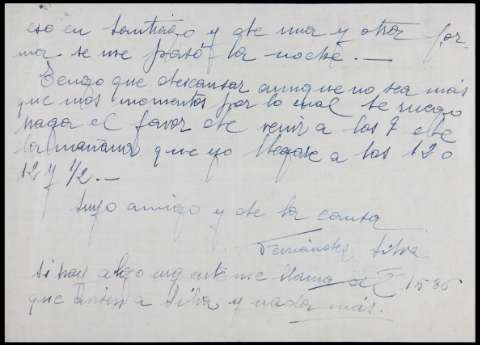 eso en Santiago y de una y otra for-
ma se me pasó la noche. —
Tengo que descansar aunque no sea más
que unos momentos por lo cual te ruego
haga el favor de venir a las 9 de
la mañana que yo llegaré a las 12 o
12 y 1/2. —
Suyo amigo y de la causa
Fernández Silva
Si hay algo urgente me llama al 1585
que avisen a Silva y nada más.